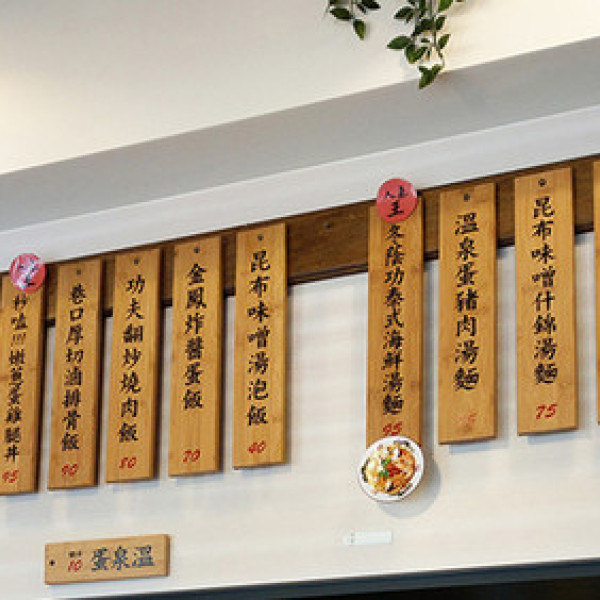 人氣
王
冬陰功泰式海鮮湯麵
95
溫泉蛋豬肉湯麵
昆布味噌什錦湯麵
75
巷口厚切滷排骨飯
90
功夫翻炒燒肉飯
80
金鳳炸醬蛋飯
70
昆布味噌湯泡飯
40
嫩蔥蛋雞腿丼
95
蛋泉溫
10